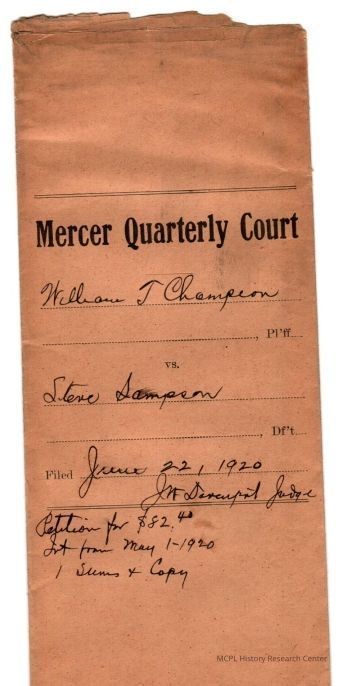 Mercer Quarterly Court
William T Champion
, Pl'ff
vs.
Steve Sampson
, Df't.
Filed June 22, 1920
JW Davenport Judge
Petition for $82.40
Int from May 1-1920
1 Sums & Copy
MCPL History Research Center